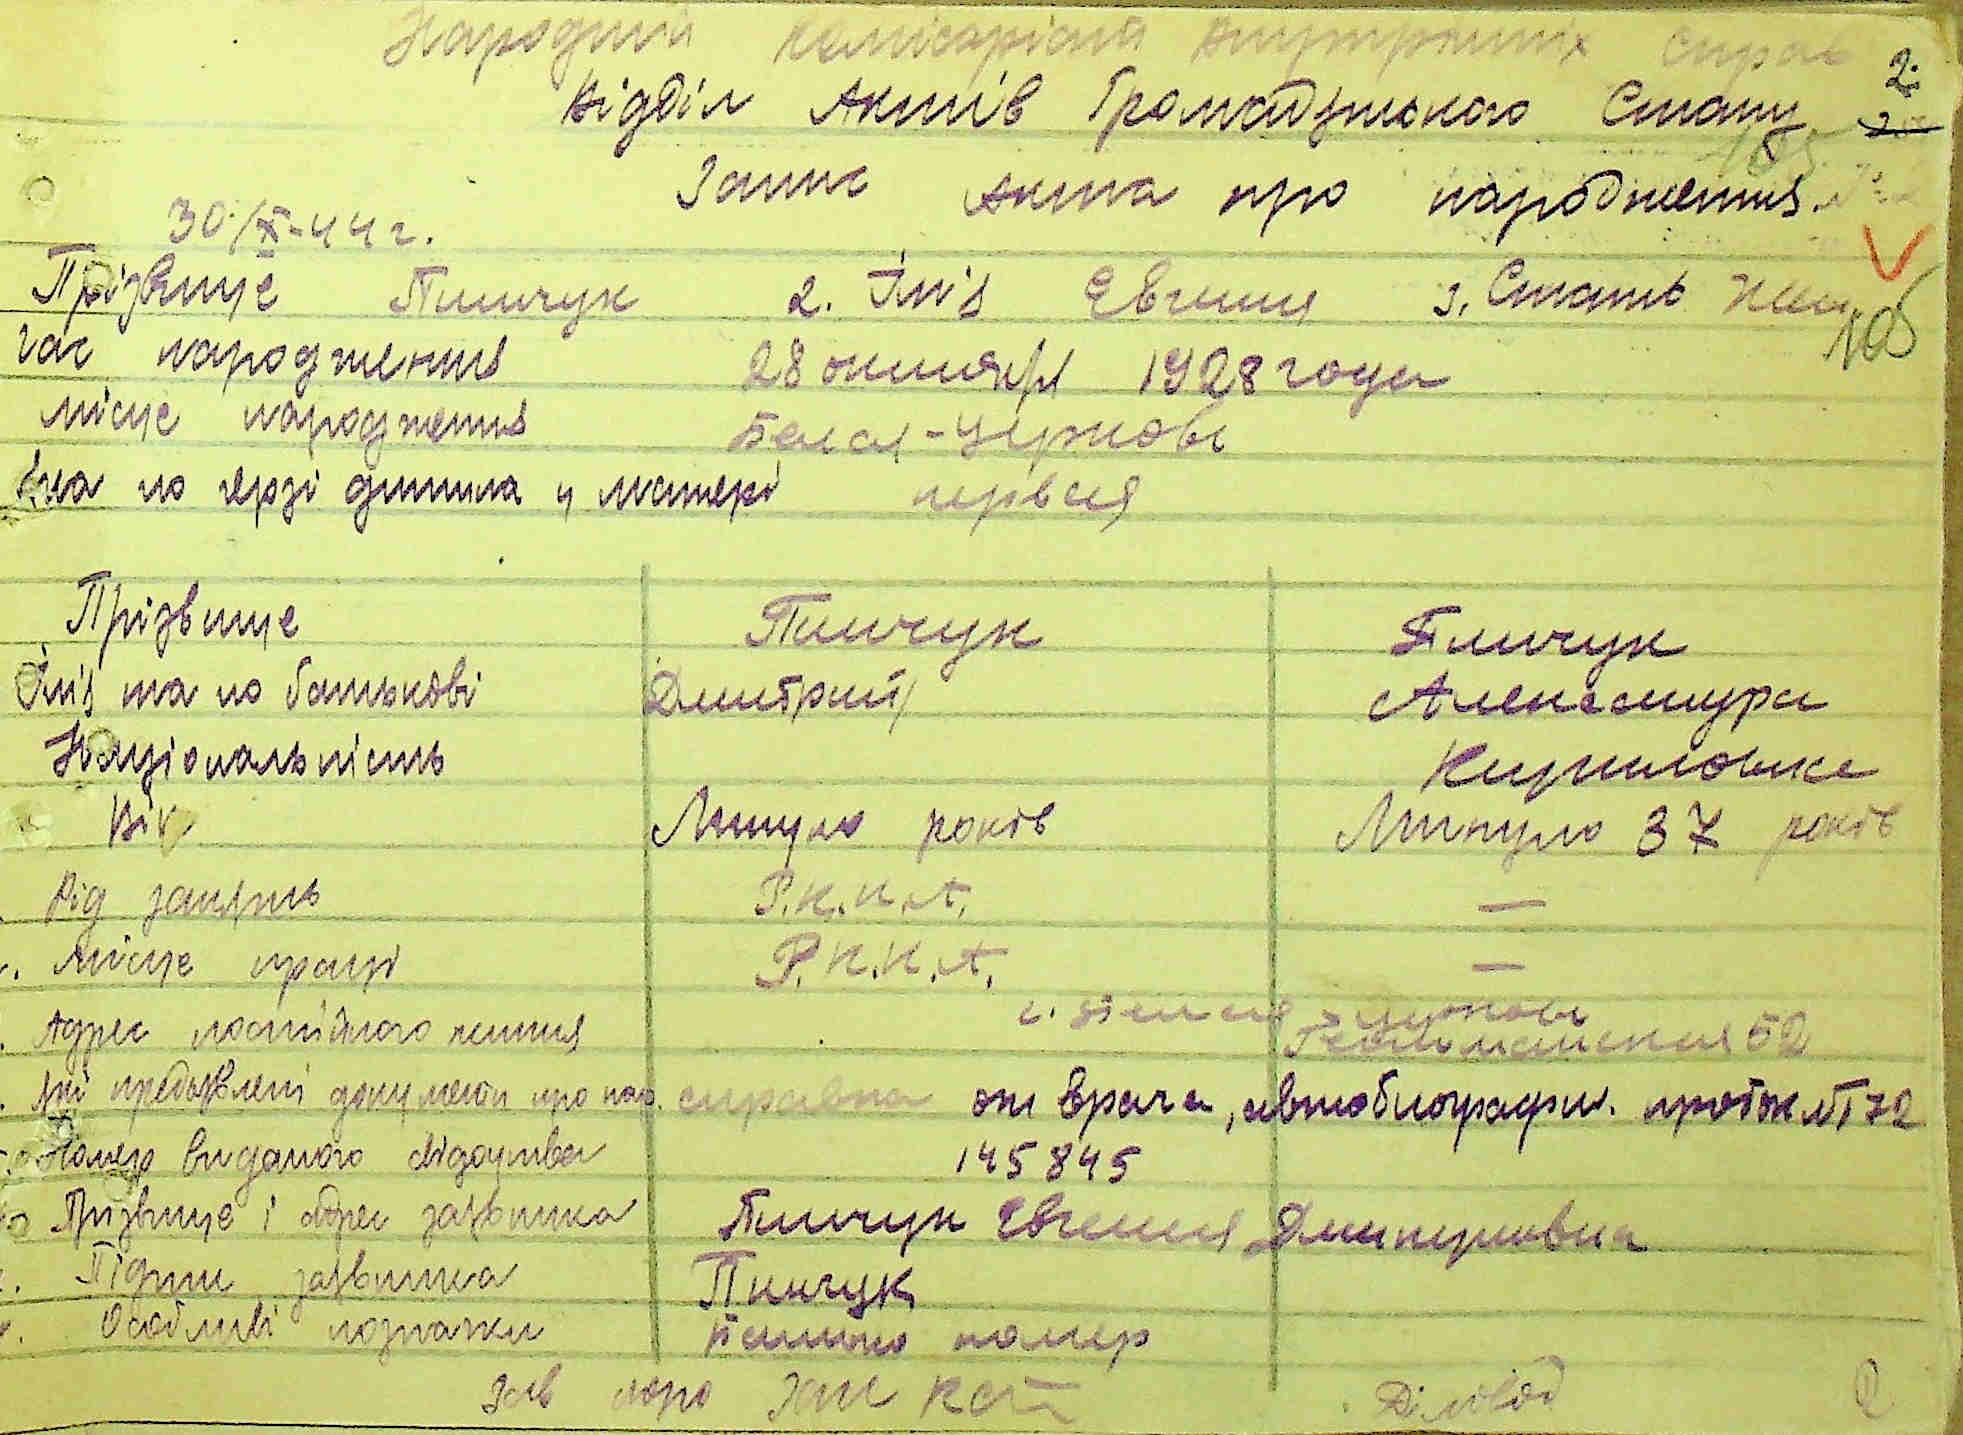 Народний Комісаріат Внутрішніх Справ
2.
Відділ Актів Громадзького Стану
Запис Акта про народження
30/X-44 г.
Прізвище Пинчук 2. Імʼя Евгения 3. Стать Жен
105
час народження 28 октября 1928 года
місце народження Белая-Церковь
яка по черзі дитина у матері первая
Прізвище Пинчук Пинчук
Імʼя та по батькові Дмитрий Александра
Національність Кириловна
Вік Минуло років Минуло 37 років
Рід занять Р.К.К.А. —
Місце праці Р.К.К.А. —
г. Белая Церковь
Адрес постійного життя 52
Які предʼявлені документи про нар. справка от врача, автобиографи. проток №172
Номер виданого свідоцтва 145845
Прізвище і адрес заявника Пинчук Евгения Дмитриевна
Підпис заявника Пинчук
Особливі позначки Батько помер
Зав бюро ЗАГС Діловод
2